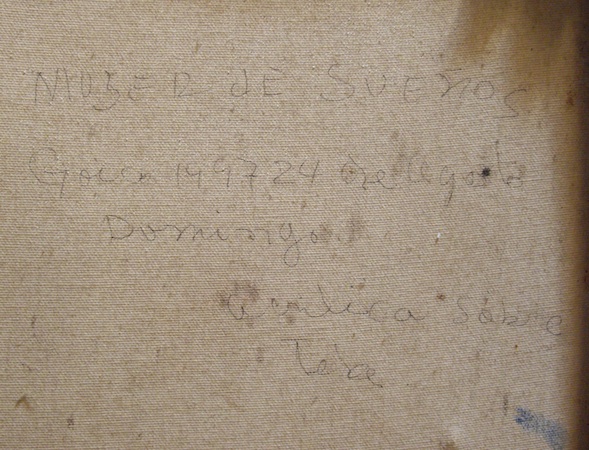 MUJER DE SUEÑOS
1997 24 de Agosto
Domingo.
Acrilica sobre
Tela